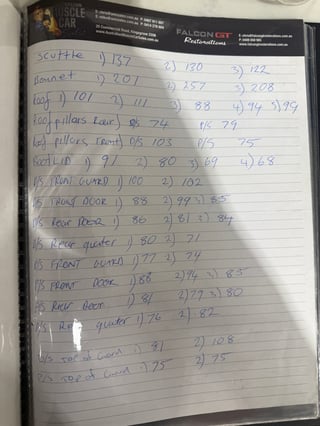 MUSCLE CAR
FALCON GT
Restorations
Scuttle 1) 137 2) 130 3) 122
Bonnet 1) 201 2) 257 3) 208
Roof 1) 101 2) 111 3) 88 4) 94 5) 99
Roof pillars Rear) D/S 74 P/S 79
Roof pillars, Front) D/S 103 P/S 75
Bootlid 1) 91 2) 80 3) 69 4) 68
D/S FRONT GUARD 1) 100 2) 102
D/S FRONT DOOR 1) 88 2) 99 3) 85
D/S Rear DOOR 1) 86 2) 81 3) 84
D/S Rear quater 1) 80 2) 71
P/S FRONT GUARD 1) 77 2) 74
P/S FRONT DOOR 1) 88 2) 94 3) 83
P/S Rear Door 1) 81 2) 79 3) 80
P/S Rear quater 1) 76 2) 82
D/S Top of Guard 1) 81 2) 108
P/S Top of Guard 1) 75 2) 75